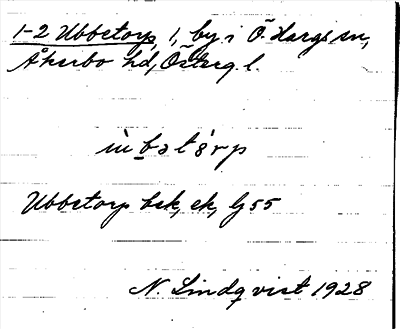 1-2 Ubbetorp, 1, by i Ö. Hargs sn,
Åkerbo hd, Österg. l.
Ubbetorp bsk, ek, Gj 55
N. Lindqvist 1928